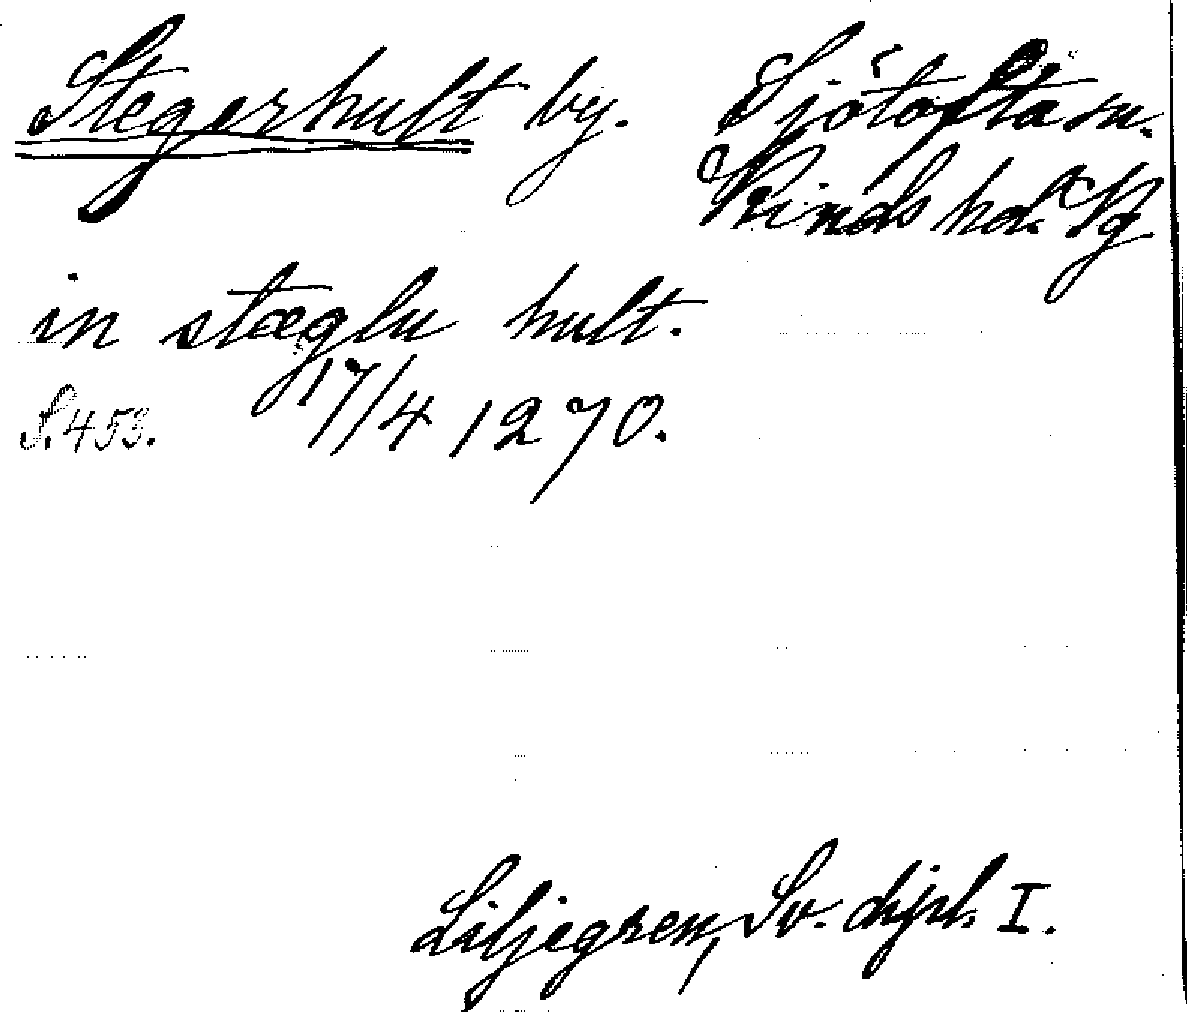 Stegerhult by. Sjötofta sn.
Kinds hd. Vg
in stæglu hult.
S. 453. 17/4 1270.
Liljegren, Sv. dipl. I.